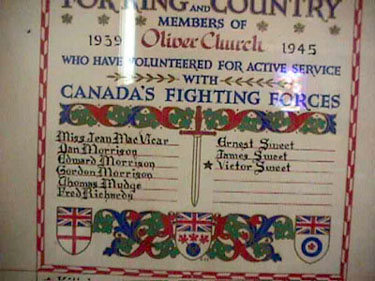 FOR KING AND COUNTRY
MEMBERS OF
1939 Oliver Church 1945
WHO HAVE VOLUNTEERED FOR ACTIVE SERVICE
WITH
CANADA'S FIGHTING FORCES
Miss Jean MacVicar
Dan Morrison
Edward Morrison
Gordon Morrison
Thomas Mudge
Fred Richards
Ernest Sweet
James Sweet
★ Victor Sweet